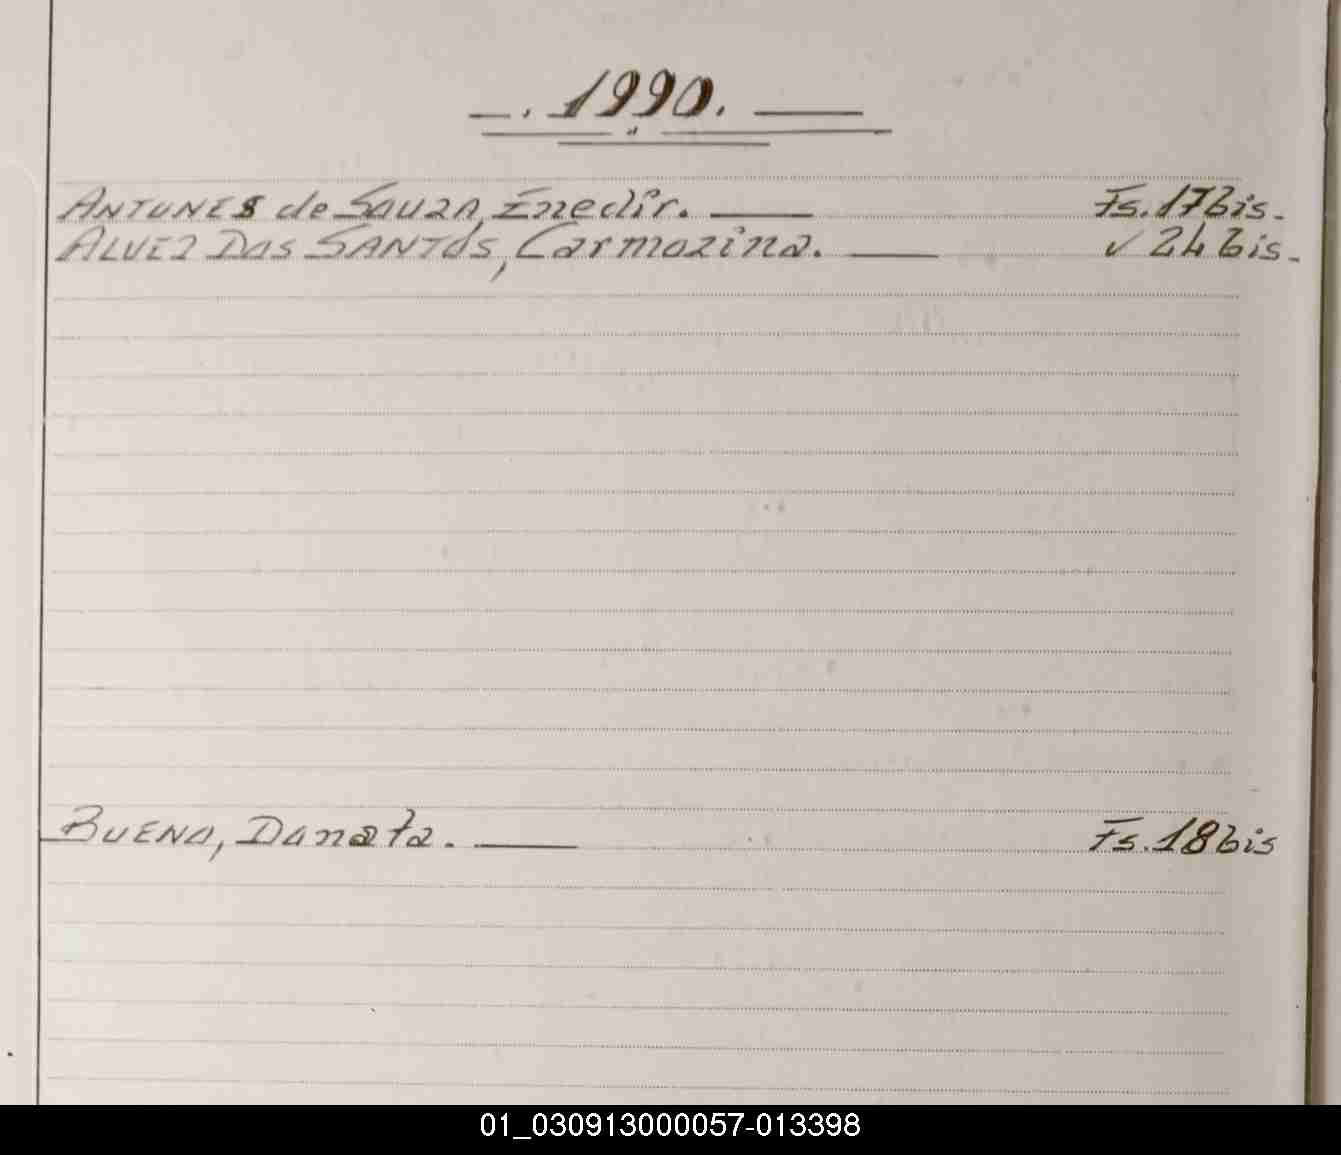 1990.
ANTUNES de SOUZA, Enedir. Fs. 17 bis.
ALVEZ DOS SANTOS, Carmozina. " 24 bis.
BUENO, Donata. Fs. 18 bis
01_030913000057-013398